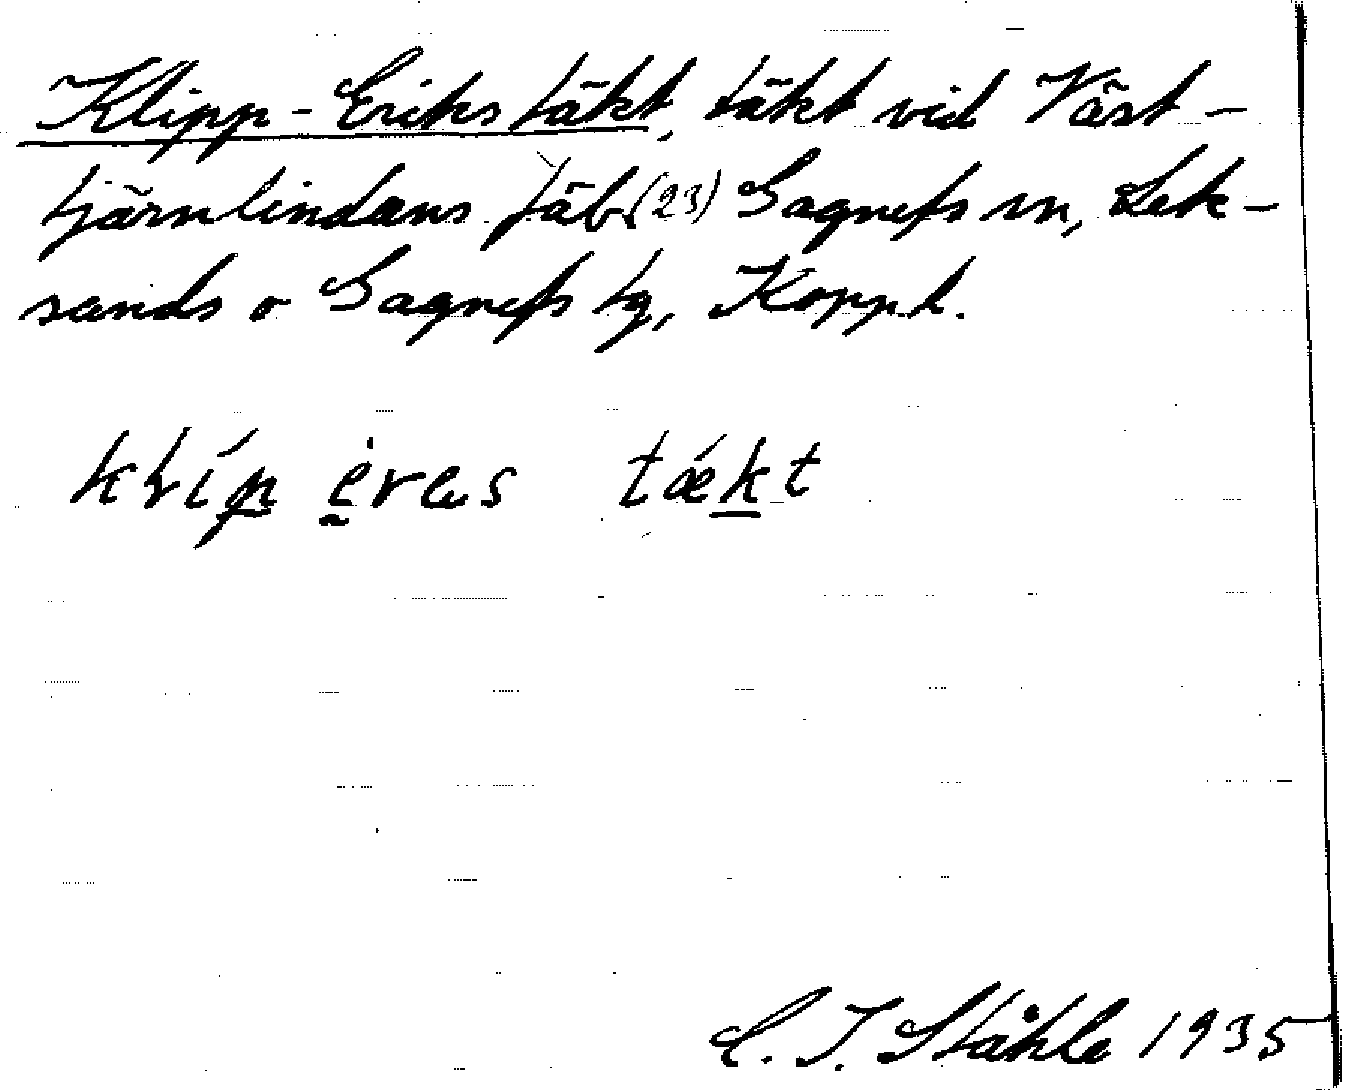 Klipp-Eriks täkt, täkt vid Väst-
tjärnlindans fäb. (23) Gagnefs sn, Lek-
sands o Gagnefs tg, Kopp.l.
täkt
C. I. Ståhle 1935